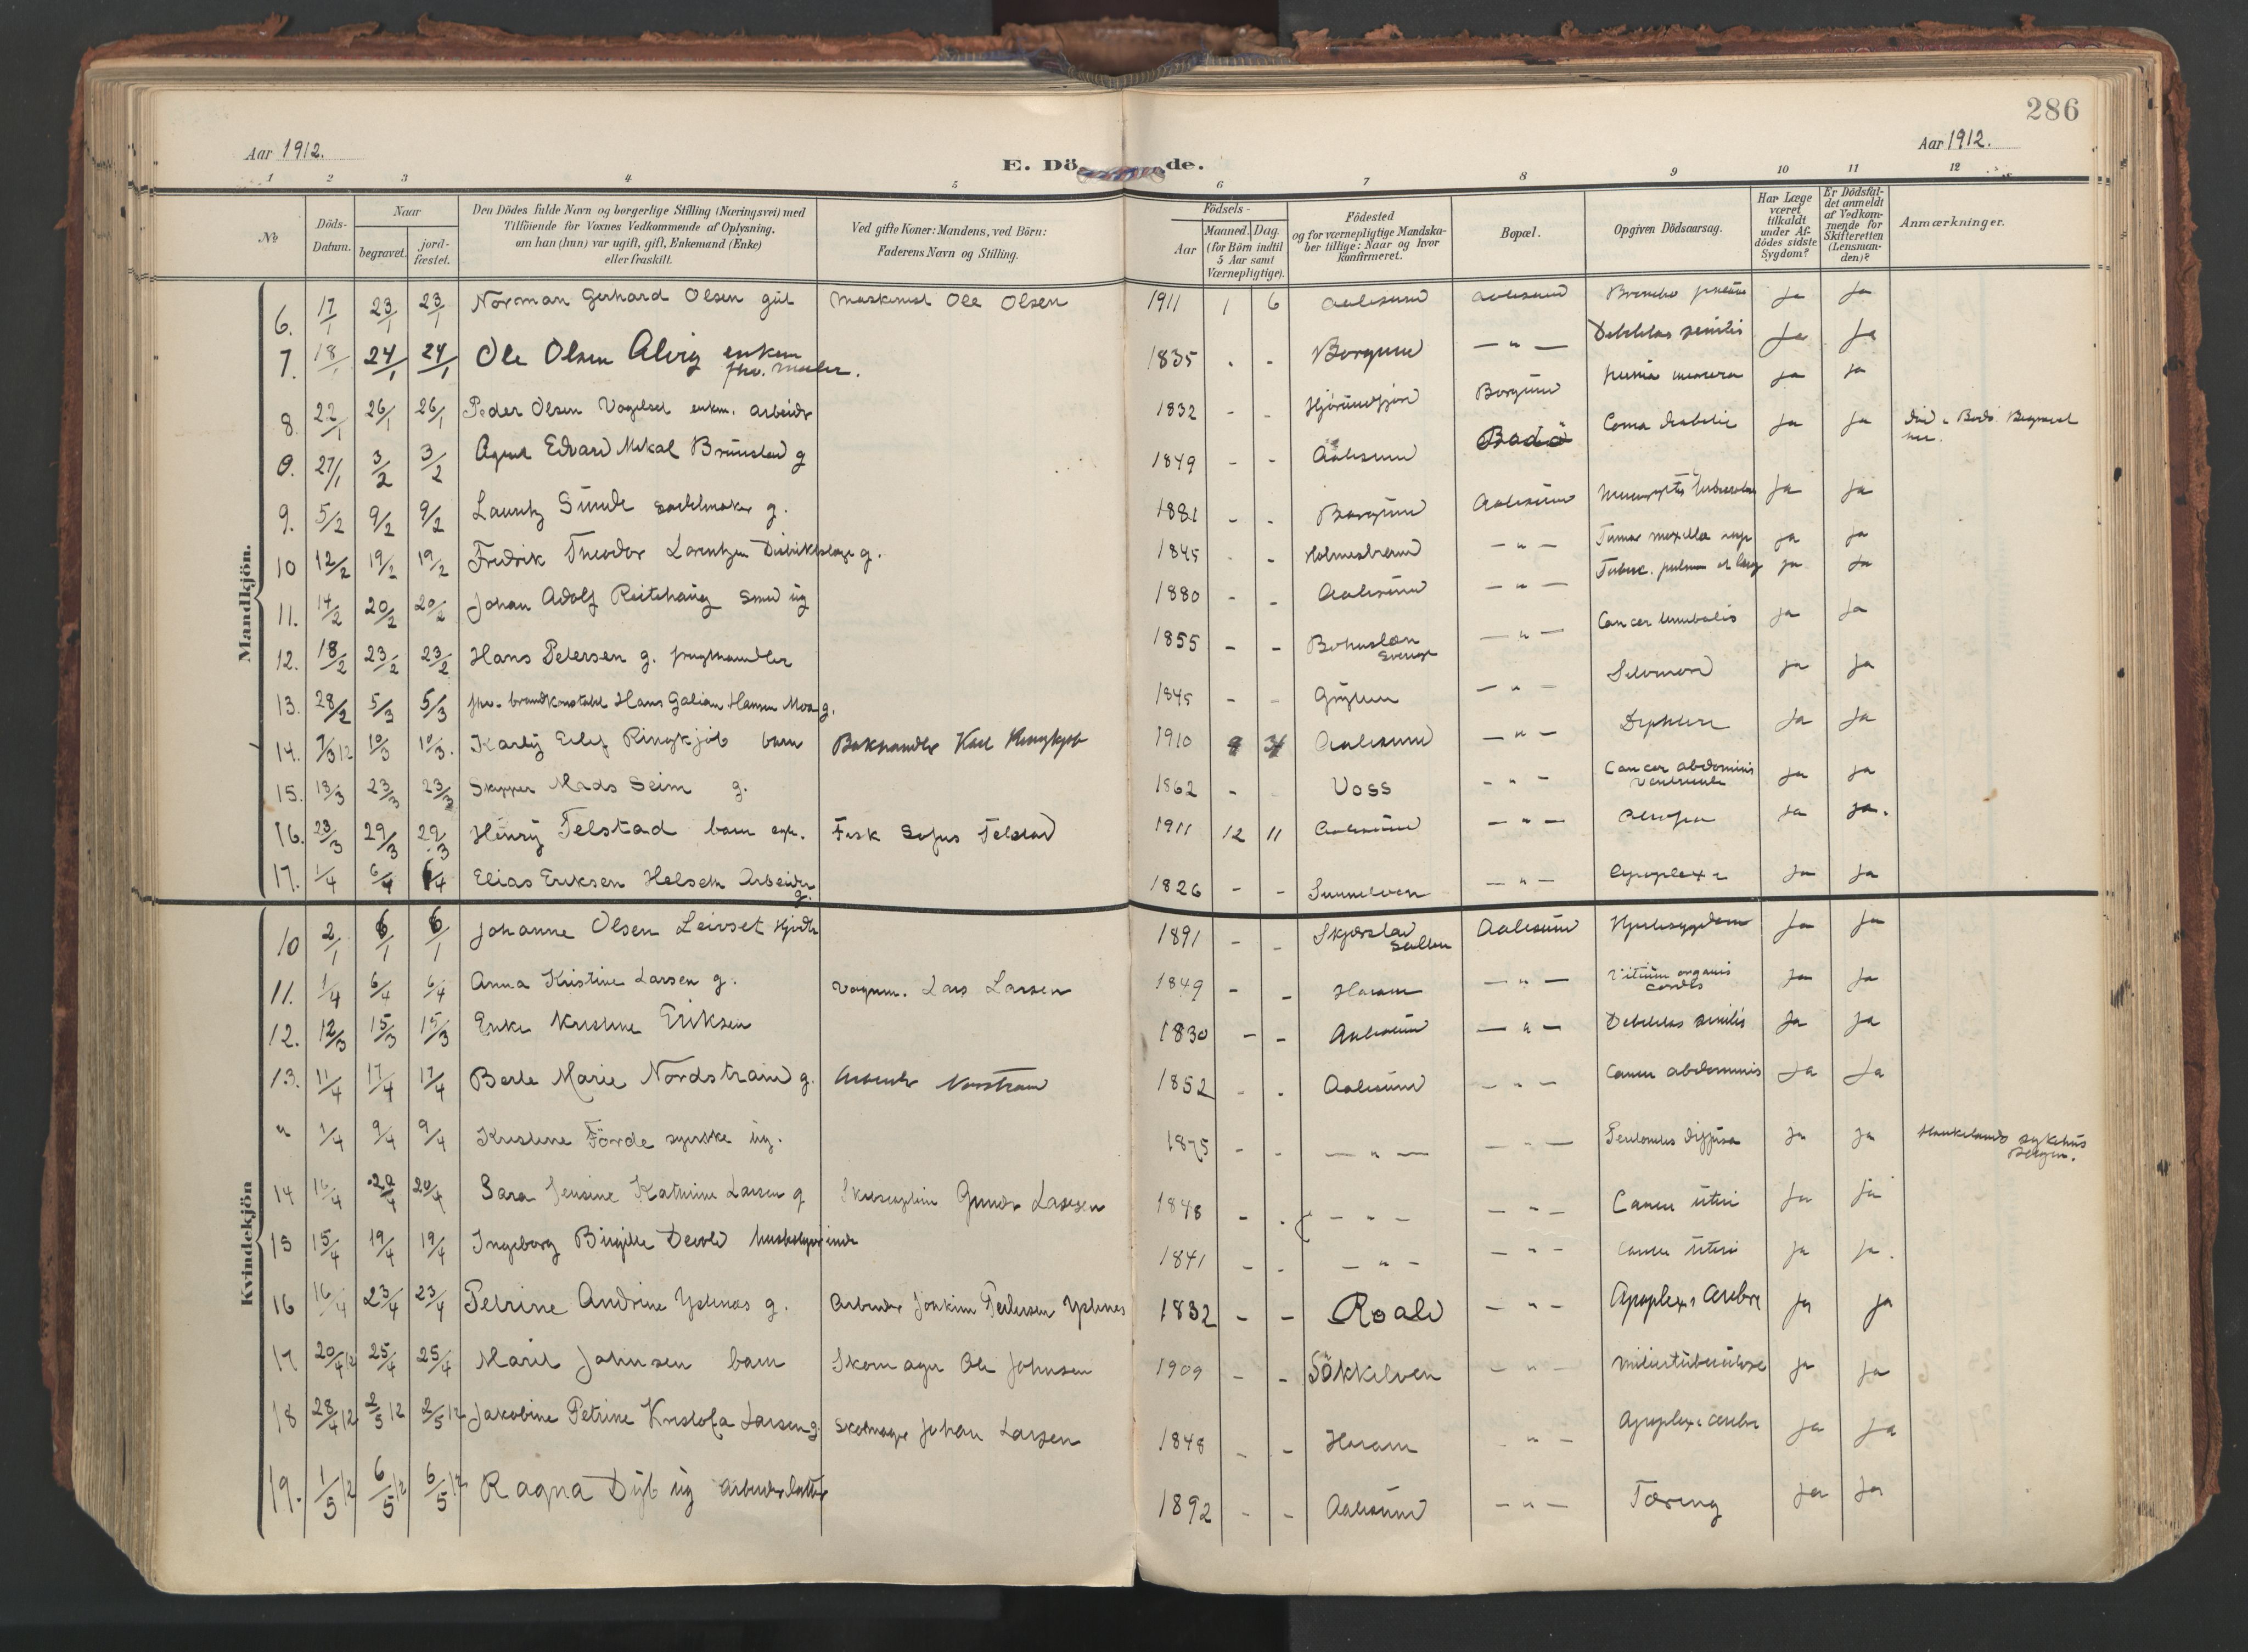 286
Aar 1912.
E. Dö de.
Aar 1912.
1 2 3 4 5 6 7 8 9 10 11 12
No
Döds-Datum.
Naar
begravet.
jord-fæstet.
Den Dödes fulde Navn og borgerlige Stilling (Næringsvei) med
Tilföiende for Voxnes Vedkommende af Oplysning,
om han (hun) var ugift, gift, Enkemand (Enke)
eller fraskilt.
Ved gifte Koner: Mandens, ved Börn:
Faderens Navn og Stilling.
Födsels-
Aar
Maaned. Dag.
(for Börn indtil
5 Aar samt
Værnepligtige).
Födested
og for værnepligtige Mandska-
ber tillige: Naar og hvor
konfirmeret.
Bopæl.
Opgiven Dödsaarsag.
Har Læge
været
tilkaldt
under Af-
dödes sidste
Sygdom?
Er Dödsfal-
det anmeldt
af Vedkom-
mende for
Skifteretten
(Lensman-
den)?
Anmærkninger.
Mandkjön.
6. 17/1 23/1 23/1 Norman Gerhard Olsen Maskinist Ole Olsen 1911 1 6 Aalesund Aalesund Ja Ja
7. 18/1 24/1 24/1 Ole Olsen Alvig enkem 1835 - - Borgund — " — Debilitas senilis Ja Ja
fhv.
8. 22/1 26/1 26/1 Peder Olsen enkm. arbeider 1832 - - Borgund Ja Ja
0. 27/1 3/2 3/2 Edvard Mikal g 1849 - - Aalesund Bodö Coma diabetic Ja Ja
9. 5/2 9/2 9/2 Lauritz Sunde g. 1881 - - Borgund Aalesund Ja Ja
10 12/2 19/2 19/2 Fredrik Theodor Lorentzen Distriktslæge g. 1845 - - Holmestrand — " — Tumor Ja Ja
11. 14/2 20/2 20/2 Johan Adolf Reitehaug Smed ug 1880 - - Aalesund — " — Ja Ja
12. 18/2 23/2 23/2 Hans Petersen g. frugthandler 1855 - - Bohuslæn — " — Cancer Ja Ja
Sverige
13. 28/2 5/3 5/3 fhv. brandkonstabel Hans Galian Hansen Moa g. 1845 - - — " — Selvmord Ja Ja
14. 7/3 12 10/3 10/3. Karly Eilif Ringkjöb barn Bokhandler Karl Ringkjöb 1910 Aalesund — " — Ja Ja
15. 18/3 23/3 23/3 Skipper Mads Seim g. 1862 - - Voss - " - Cancer abdominis Ja Ja
16. 23/3 29/3 29/3 Henry Telstad barn Fisk Sofus Telstad 1911 12 11 Aalesund — " — Ja Ja.
17. 1/4 6/4 6/4 Elias Eriksen Helsem Arbeider 1826 - - Sunnelven — " — Apoplexi Ja Ja
g.
Kvindekjön
10 2/1 6/1 6/1 Johanne Olsen Leivset 1891 - - Aalesund Ja Ja
11. 1/4 6/4 6/4 Anna Kristine Larsen g. Vognm. Lars Larsen 1849 - - Haram — " — Vitium organis Ja Ja
cordis
12. 12/3 15/3 15/3 Enke Kristine Eriksen 1830 - - Aalesund — " — Debilitas senilis Ja Ja
13. 11/4 17/4 17/4 Berte Marie Nordstrand g. Arbeider Norstrand 1852 - - Aalesund - " - Cancer abdominis Ja Ja
" 1/4 9/4 9/4 Kristine Förde syerske ug. 1875 - - — " — — " — Ja Ja Haukelands sykehus
Bergen.
14 16/4 20/4 20/4 Sara Jensine Katrine Larsen g Larsen 1848 - - - " - — " — Cancer uteri Ja Ja
15 15/4 19/4 19/4 Ingeborg Birgitte Devold husholderinde 1841 - - — " - — " — Cancer uteri Ja Ja.
16 16/4 23/4 23/4 Petrine Andrine Ystenes g. Arbeider Joakim Pedersen Ystenes 1832 - - Roald — " — Apoplexi cerebri Ja Ja
17 20/4 12 25/4 25/4 Marit Johnsen barn Skomager Ole Johnsen 1909 - - Sökkelven — " — Ja Ja
18 28/4 12 2/5 12 2/5 12 Jakobine Petrine Kristofa Larsen g. Skomager Johan Larsen 1848 - - Haram - " — Apoplexi cerebri Ja Ja
19. 1/5 12 6/5 12 6/5 12 Ragna Dyb ug arbeiderdatter 1892 - - Aalesund — " — Tæring Ja Ja